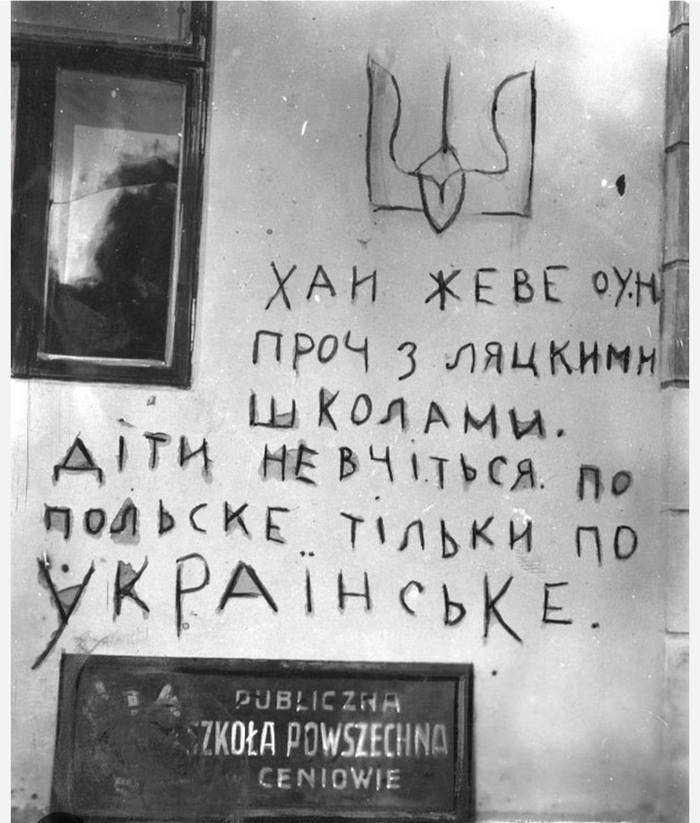 ХАИ ЖЕВЕ ОУН
ПРОЧ З ЛЯЦКИМИ
ШКОЛАМИ.
ДІТИ НЕ ВЧІТЬСЯ. ПО
ПОЛЬСКЕ. ТІЛЬКИ ПО
УКРАЇНСЬКЕ.
PUBLICZNA
SZKOŁA POWSZECHNA
CENIOWIE